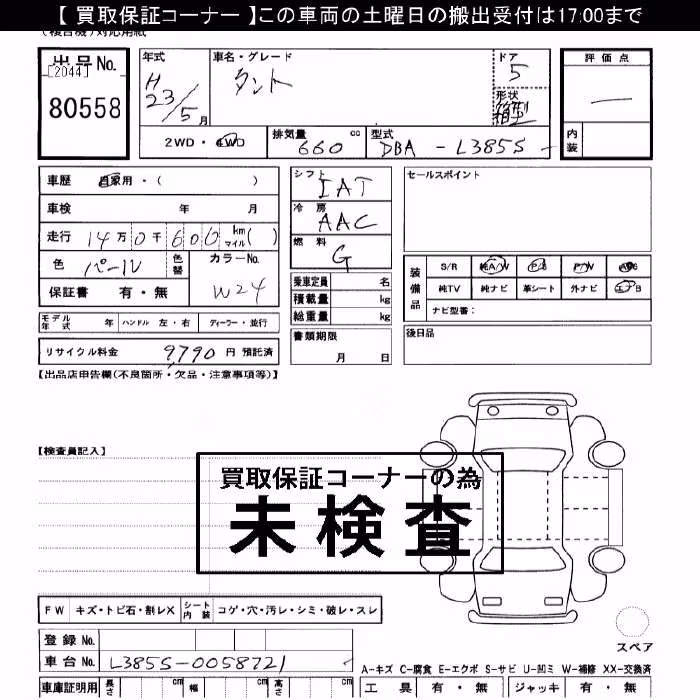 【 買取保証コーナー 】この車両の土曜日の搬出受付は17:00まで
出品No.
[2044]
80558
年式
H23/5月
車名・グレード
タント
ドア
5
形状
箱型
評価点
―
内装
2WD・4WD
排気量 660 cc
型式 DBA - L385S -
車歴 自家用・( )
車検 年 月
走行 14万0千600 km マイル( )
色 パール 色替
カラーNo. W24
保証書 有・無
シフト IAT
冷房 AAC
燃料 G
乗車定員 名
積載量 kg
総重量 kg
書類期限
月 日
セールスポイント
装備品
S/R 純A/W P/S P/W ABS
純TV 純ナビ 革シート 外ナビ エアB
ナビ型番:
後日品
モデル年式 年 ハンドル 左・右 ディーラー・並行
リサイクル料金 9,790 円 預託済
【出品店申告欄(不良箇所・欠品・注意事項等)】
【検査員記入】
買取保証コーナーの為
未検査
FW キズ・トビ石・割レX シート内装 コゲ・穴・汚レ・シミ・破レ・スレ
スペア
登録No.
車台No. L385S-0058721
A-キズ C-腐食 E-エクボ S-サビ U-凹ミ W-補修 XX-交換済
車庫証明用 長さ cm 幅 cm 高さ cm
工具 有・無 ジャッキ 有・無